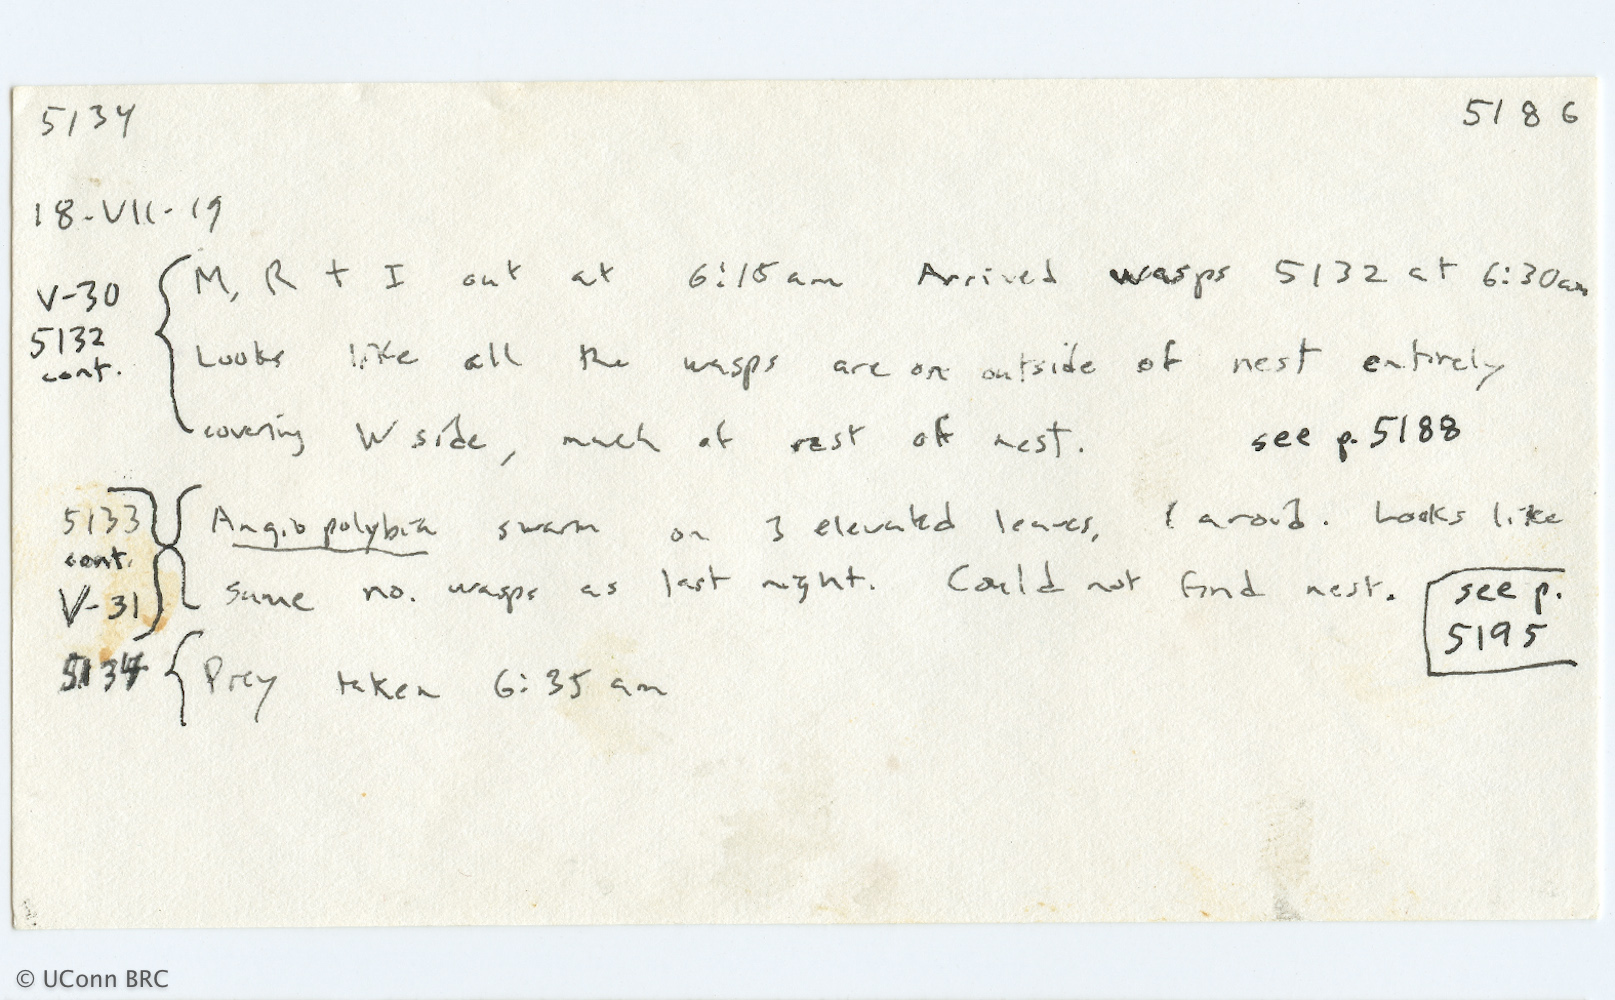 5134 5186
18-VII-19
V-30 M, R + I out at 6:15am Arrived wasps 5132 at 6:30am
5132 cont. Looks like all the wasps are on outside of nest entirely
covering W side, much of rest of nest. see p. 5188
5133 Angiopolybia swarm on 3 elevated leaves, 1 aroid. Looks like
cont.
V-31 same no. wasps as last night. Could not find nest. see p.
5195
5134 Prey taken 6:35 am
© UConn BRC